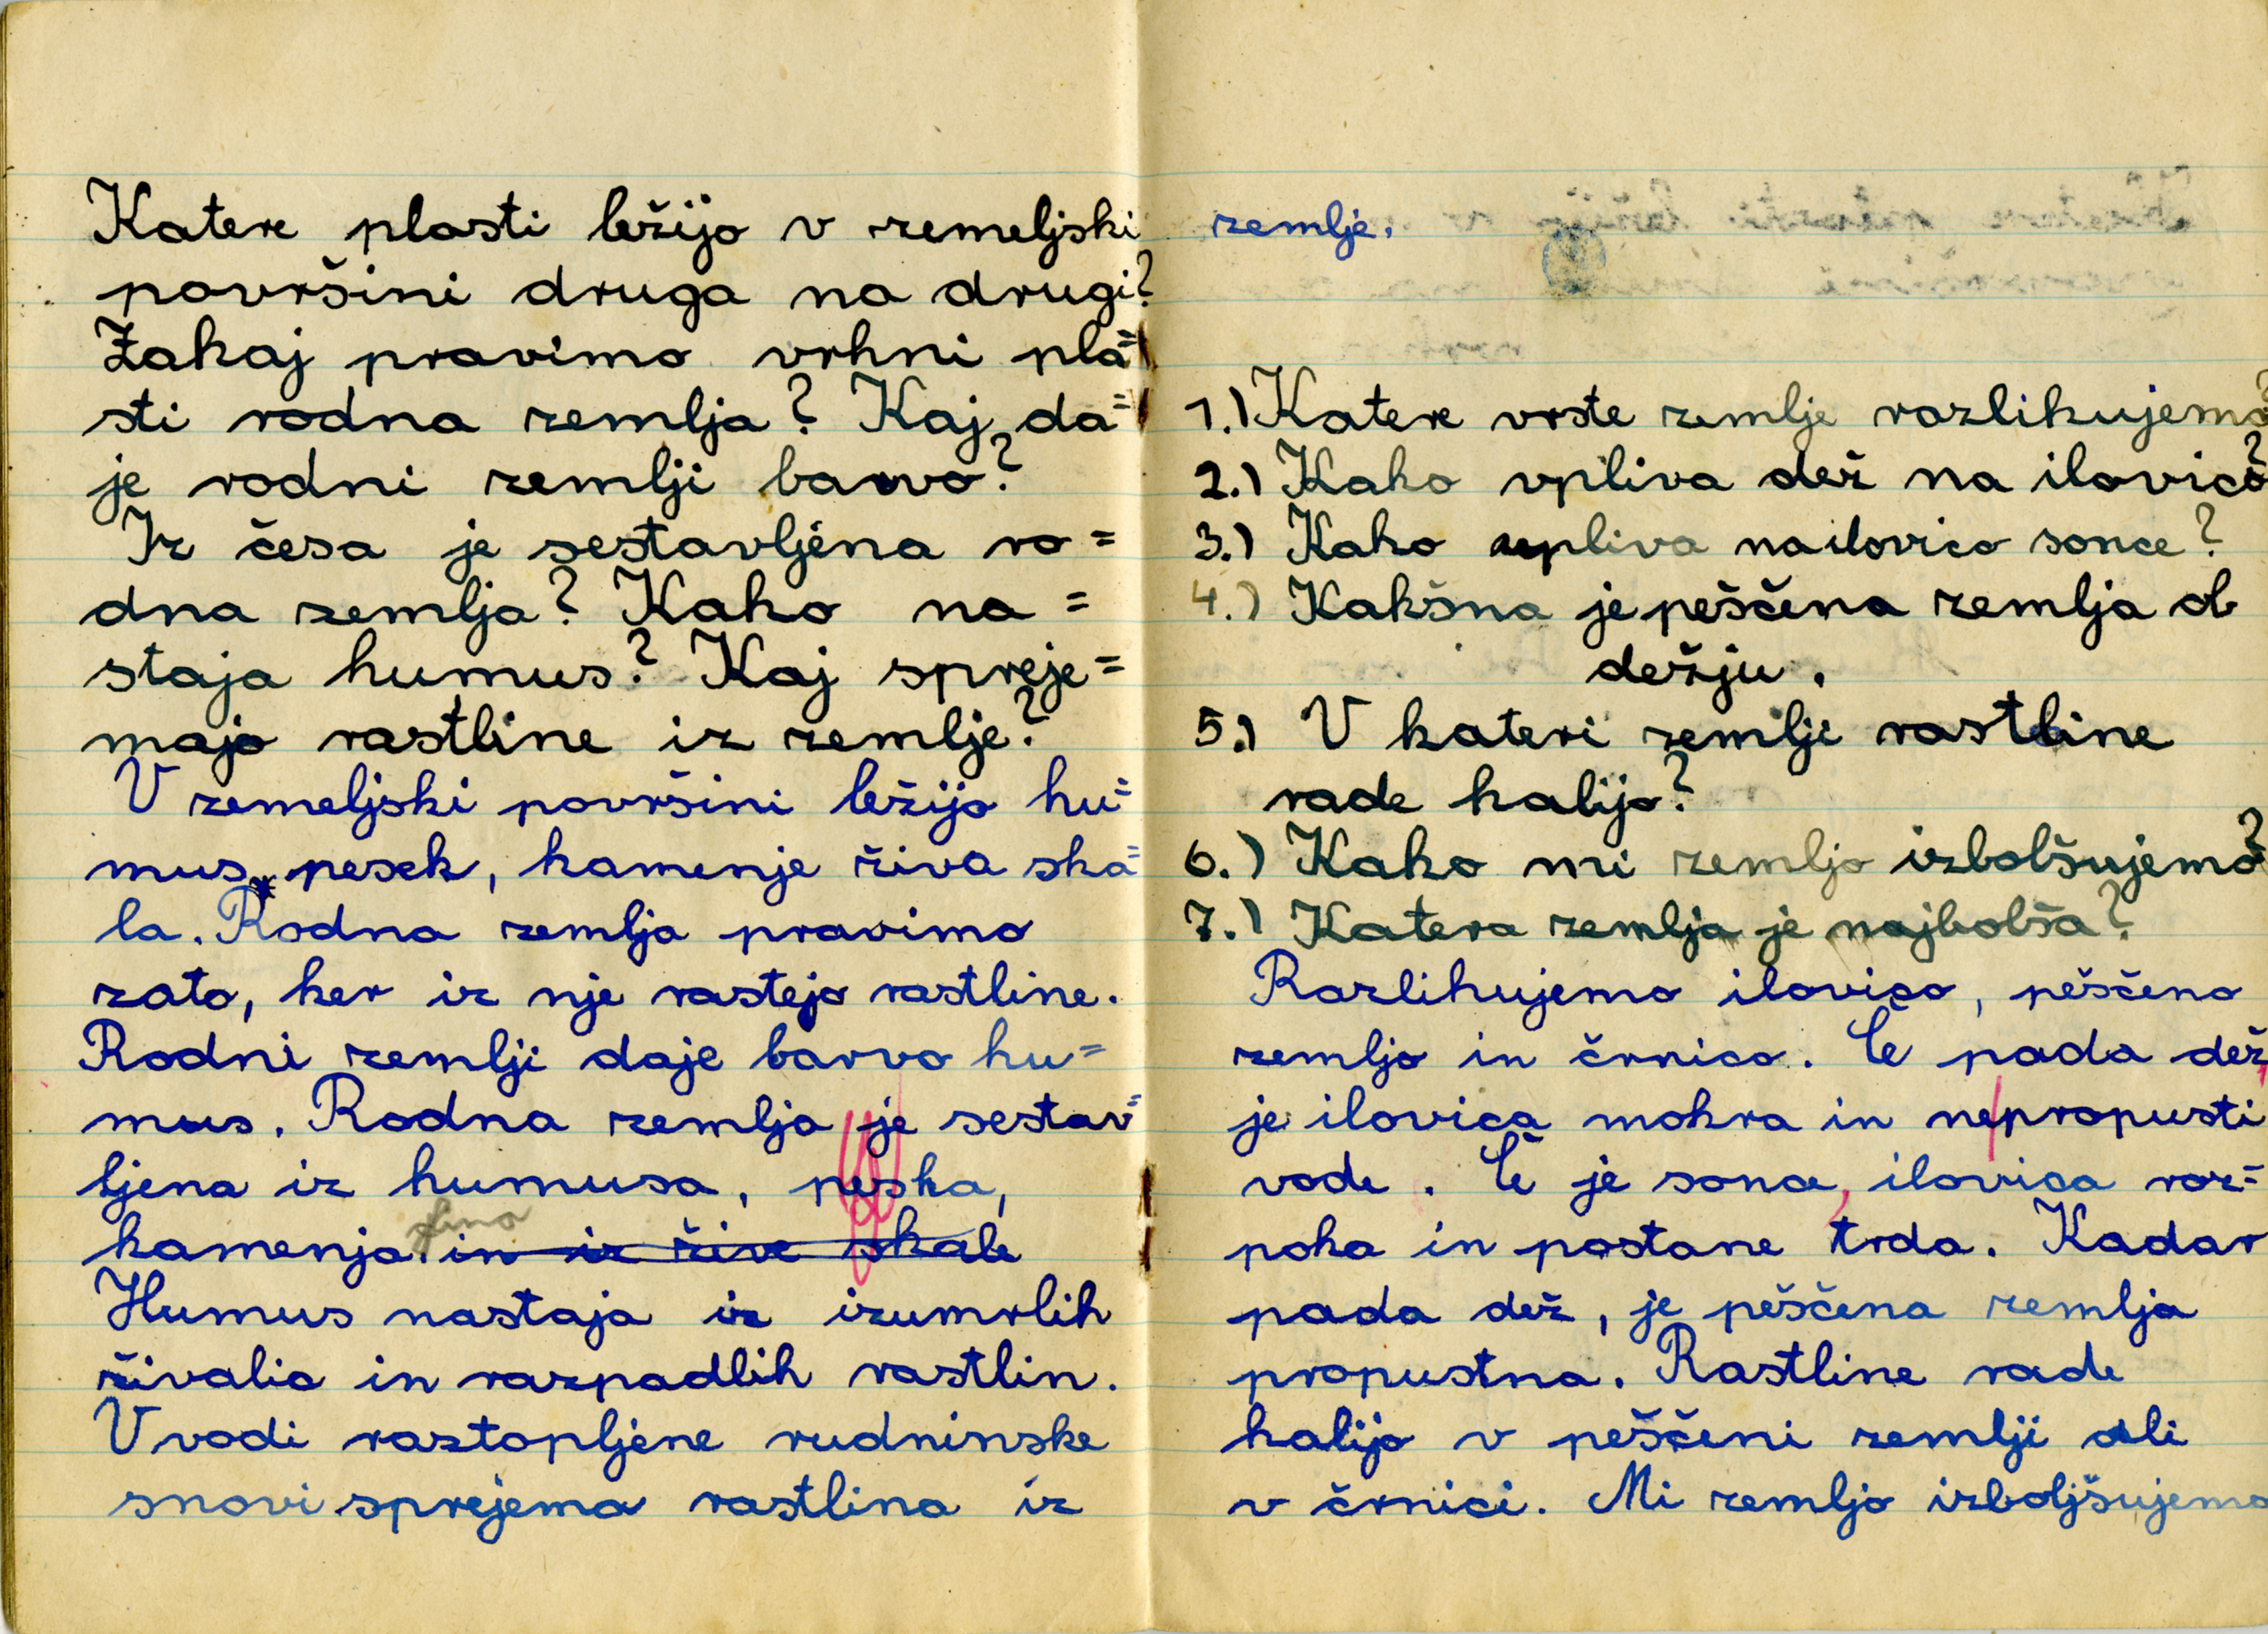 Katere plasti ležijo v zemeljski
površini druga na drugi?
Zakaj pravimo vrhni pla=
sti rodna zemlja? Kaj da=
je rodni zemlji barvo?
Iz česa je sestavljena ro=
dna zemlja? Kako na=
staja humus? Kaj spreje=
majo rastline iz zemlje?
V zemeljski površini ležijo hu=
mus, pesek, kamenje živa ska=
la. Rodna zemlja pravimo
zato, ker iz nje rastejo rastline.
Rodni zemlji daje barvo hu=
mus. Rodna zemlja je sestav=
ljena iz humusa, peska,
kamenja. in iz žive skale
Humus nastaja iz izumrlih
živalic in razpadlih rastlin.
V vodi raztopljene rudninske
snovi sprejema rastlina iz
zemlje.
1.) Katere vrste zemlje razlikujemo?
2.) Kako vpliva dež na ilovico?
3.) Kako vpliva na ilovico sonce?
4.) Kakšna je peščena zemlja ob
dežju.
5.) V kateri zemlji rastline
rade kalijo?
6.) Kako mi zemljo izbolšujemo?
7.) Katera zemlja je najbolša?
Razlikujemo ilovico, peščeno
zemljo in črnico. Če pada dež,
je ilovica mokra in ne propusti
vode. Če je sonce, ilovica raz=
poka in postane trda. Kadar
pada dež, je peščena zemlja
propustna. Rastline rade
kalijo v peščeni zemlji ali
v črnici. Mi zemljo izboljšujemo